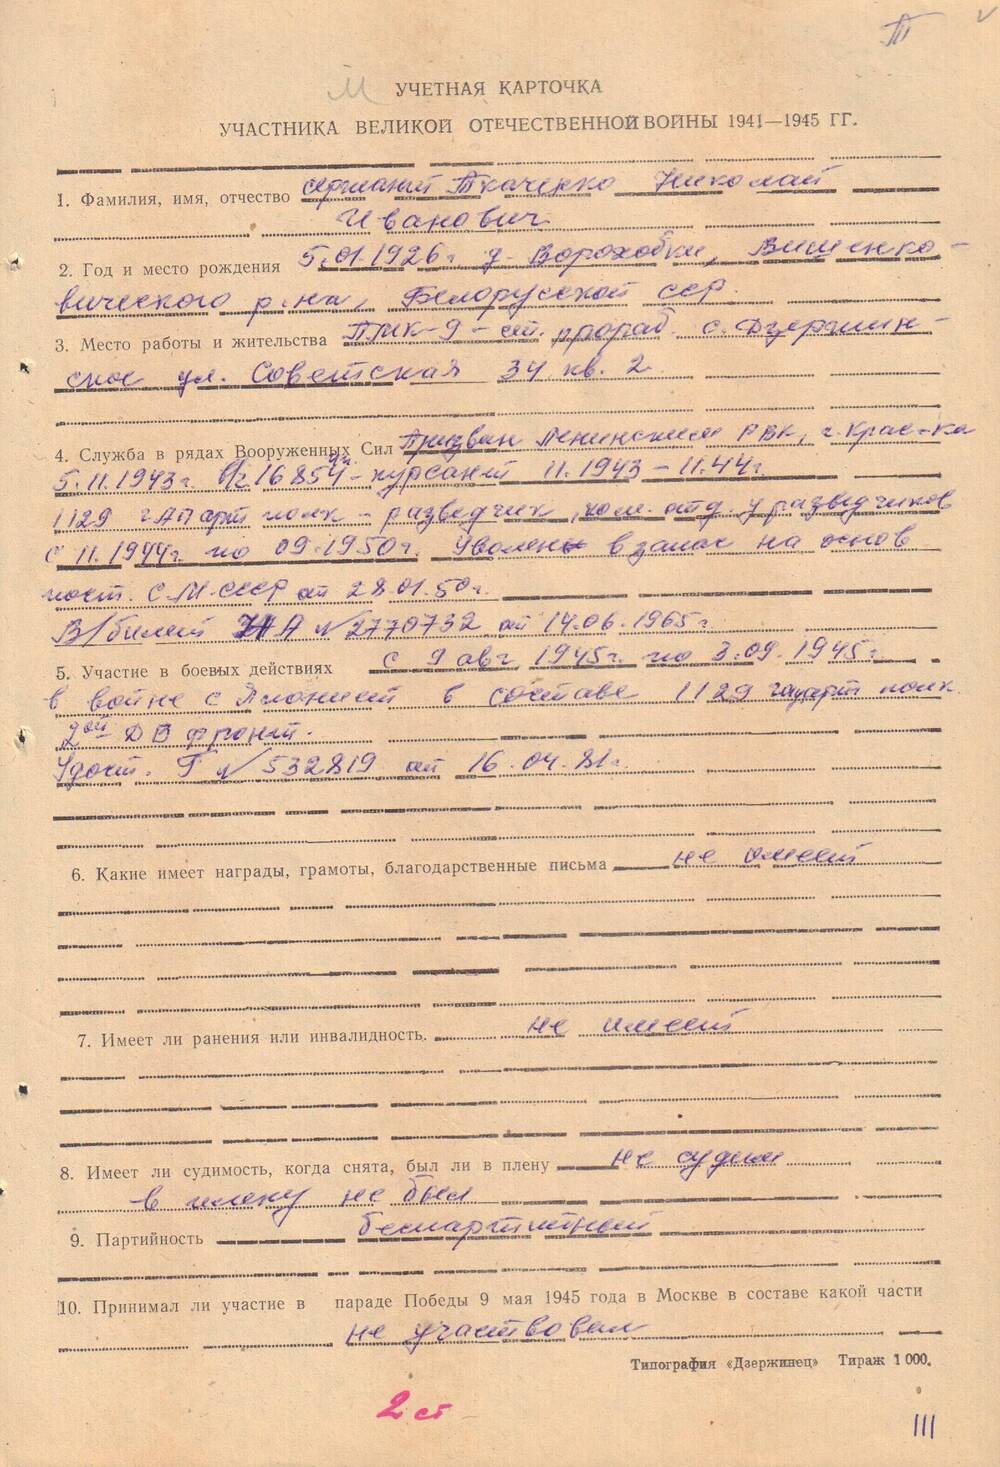 Т
М
УЧЕТНАЯ КАРТОЧКА
УЧАСТНИКА ВЕЛИКОЙ ОТЕЧЕСТВЕННОЙ ВОЙНЫ 1941—1945 ГГ.
1. Фамилия, имя, отчество сержант Ткаченко Николай
Иванович
2. Год и место рождения 5.01.1926г д. Ворохобки, Вишенко-
вического р-на, Белорусской сср.
3. Место работы и жительства ПМК-9 - ст. прораб. с. Дзержин-
ское ул. Советская 34 кв. 2
4. Служба в рядах Вооруженных Сил Призван Ленинским РВК, г. Крас-ка
5.11.1943г. в/ч 16854 - курсант 11.1943 - 11.44г.
1129 гап арт полк - разведчик, ком. отд. разведчиков
с 11.1944г. по 09.1950г. Уволен в запас на основ
пост. С.М. СССР от 28.01.50г.
В/билет НА №2770732 от 14.06.1965г.
5. Участие в боевых действиях с 9 авг 1945г. по 3.09.1945г.
в войне с Японией в составе 1129 гап арт полк.
2ой ДВ фронт.
Удост. Г №532819 от 16.04.81г.
6. Какие имеет награды, грамоты, благодарственные письма не имеет
7. Имеет ли ранения или инвалидность. не имеет
8. Имеет ли судимость, когда снята, был ли в плену не судим
в плену не был
9. Партийность беспартийный
10. Принимал ли участие в параде Победы 9 мая 1945 года в Москве в составе какой части
не участвовал
Типография «Дзержинец» Тираж 1 000.
2 ст
111